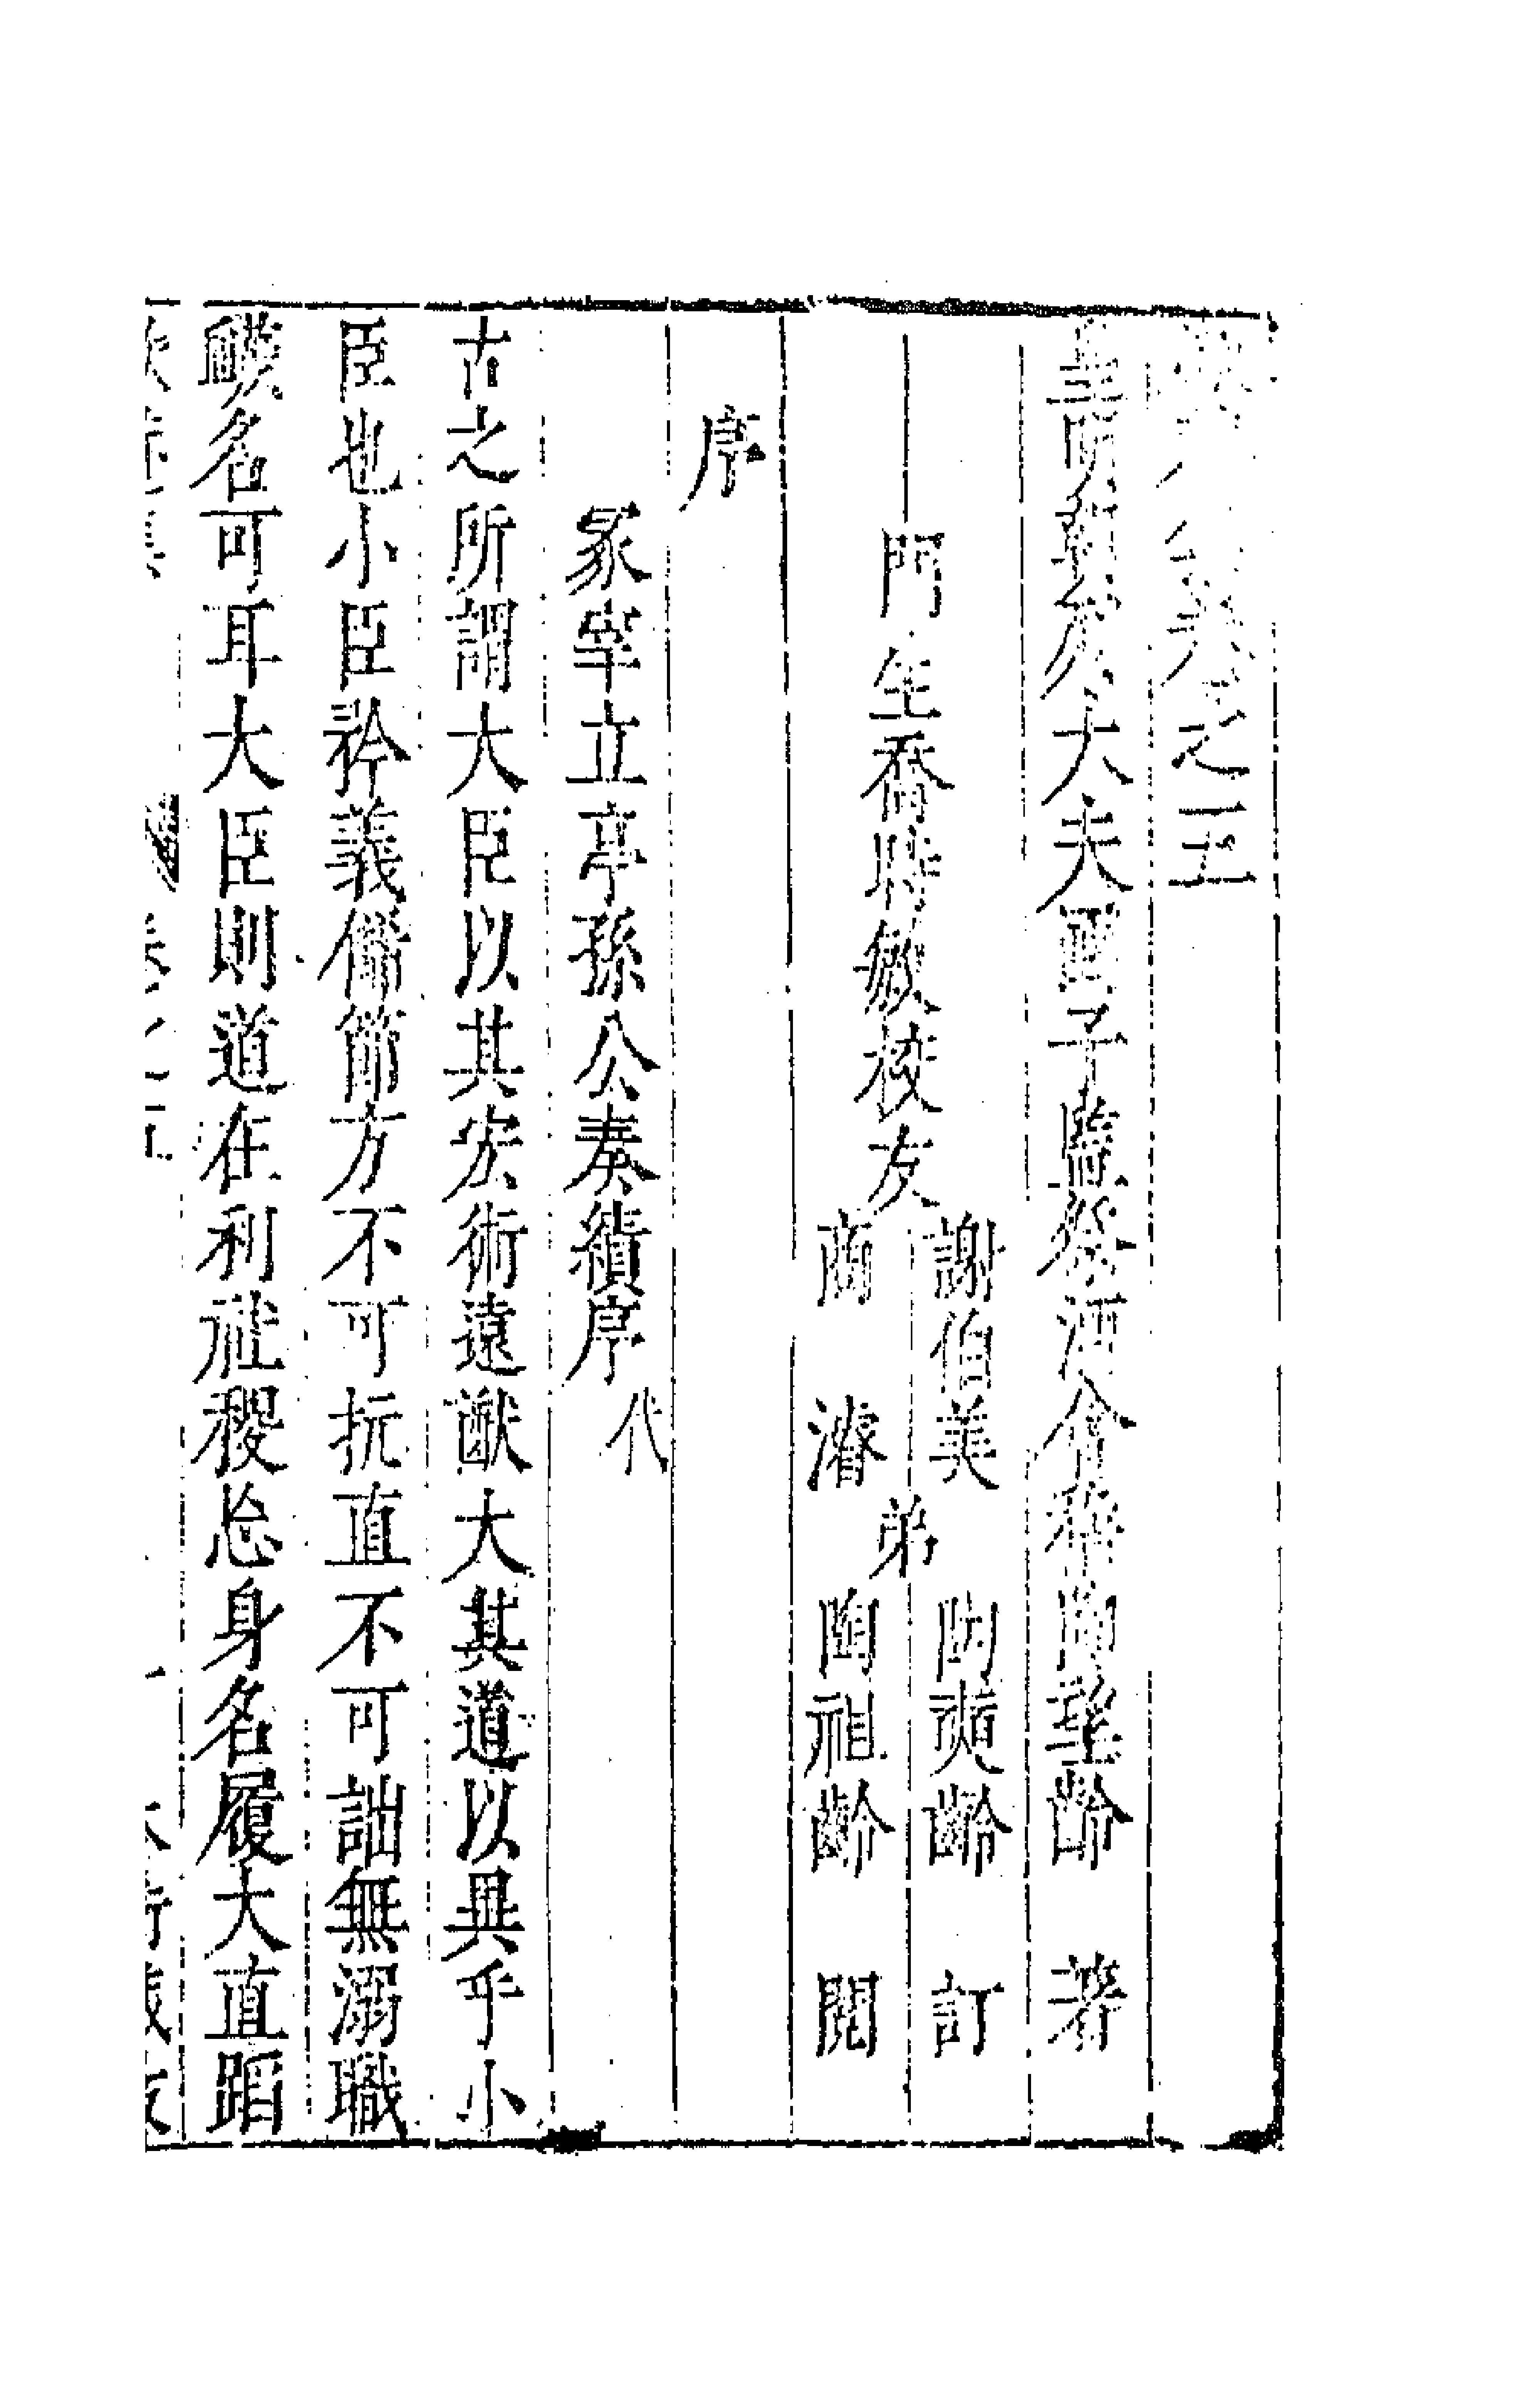 卷之五
皇明朝列大夫國子監祭酒會稽陶望齡 著
門生喬時敏校友
謝伯美
商 濬
弟
陶奭齡 訂
陶祖齡 閱
序
冡宰立亭孫公奏績序 代
古之所謂大臣以其宏術遠猷大其道以異乎小
臣也小臣矜義脩節方不可抗直不可詘無溺職
曠名可耳大臣則道在利社稷忘身名履大直蹈